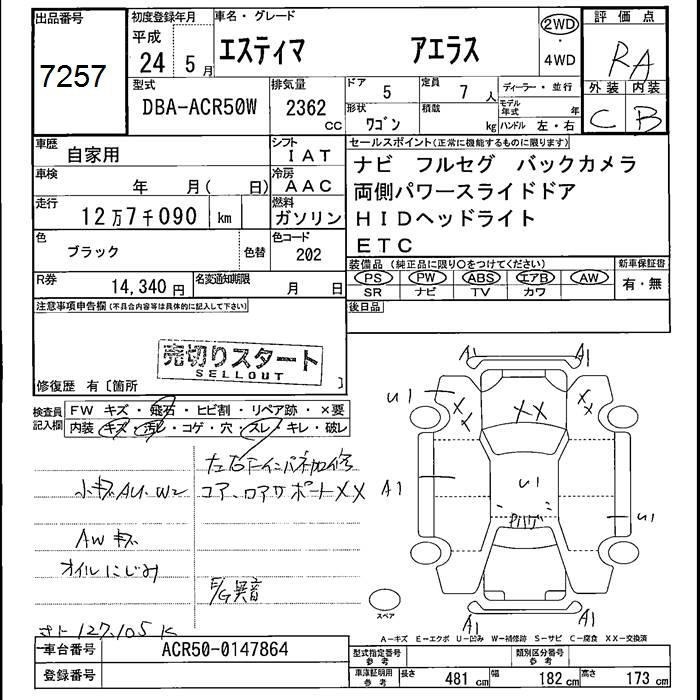 出品番号
7257
初度登録年月
平成
24 5月
車名・グレード
エスティマ アエラス
2WD
・
4WD
評価点
RA
外装 内装
C B
型式
DBA-ACR50W
排気量
2362
cc
ドア
5
定員
7人
ディーラー・並行
形状
ワゴン
積載
kg
モデル年式
年
ハンドル 左・右
車歴
自家用
シフト
IAT
車検
年 月( 日)
冷房
AAC
走行
12万7千090 km
燃料
ガソリン
色
ブラック
色替
色コード
202
R券
14,340円
名変通知期限
月 日
セールスポイント(正常に機能するものに限ります)
ナビ フルセグ バックカメラ
両側パワースライドドア
HIDヘッドライト
ETC
装備品(純正品に限り○をつけてください)
新車保証書
PS PW ABS エアB AW
有・無
SR ナビ TV カワ
後日品
注意事項申告欄(不具合内容等は具体的に記入して下さい)
売切りスタート
SELLOUT
修復歴 有〔箇所 〕
検査員記入欄
FW キズ・飛石・ヒビ割・リペア跡・×要
内装 キズ・汚レ・コゲ・穴・スレ・キレ・破レ
小キズAU.W2
コア、ロアサポートXX
AWキズ
オイルにじみ
E/G異音
127,105K
A1 A1
U1
XX XX XX
A1
U1
U1
A1 A1
スペア
A-キズ E-エクボ U-凹み W-補修跡 S-サビ C-腐食 XX-交換済
車台番号
ACR50-0147864
登録番号
型式指定番号
参考
類別区分番号
参考
車庫証明用
参考
長さ 481cm 幅 182cm 高さ 173cm